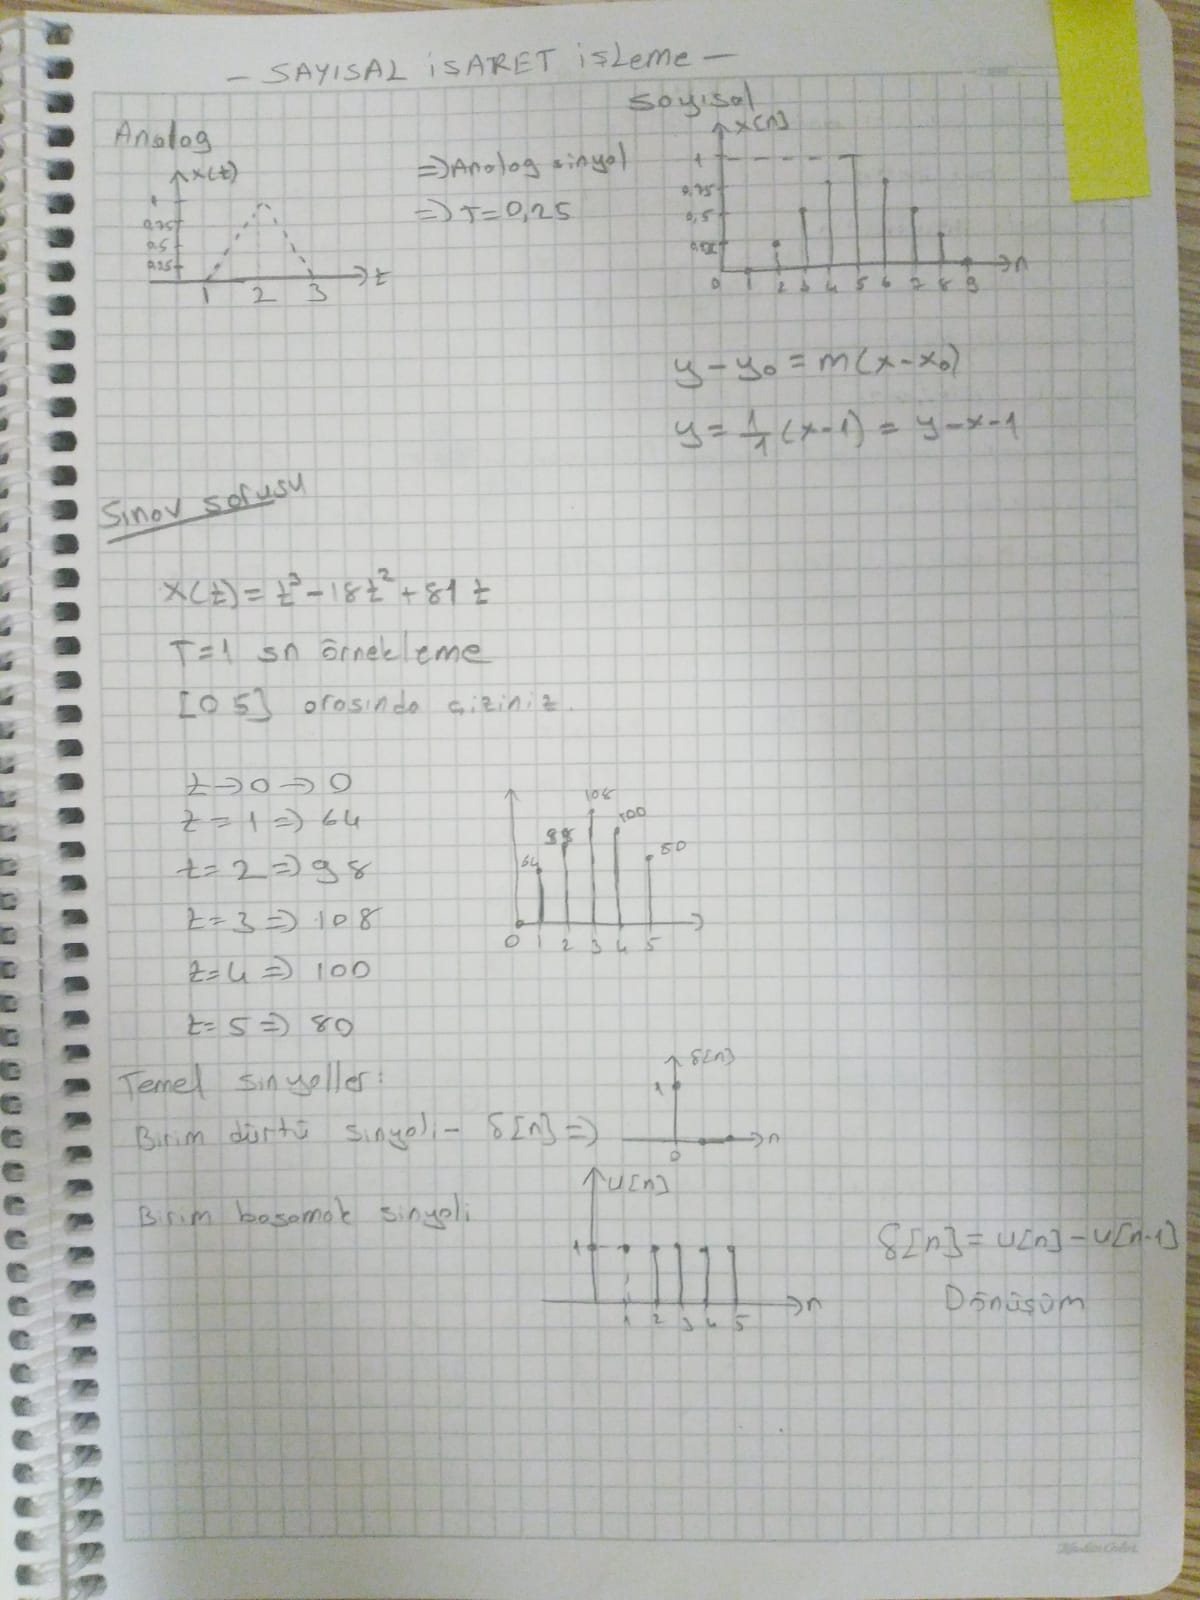 - SAYISAL İŞARET İŞLEME -
Analog
x(t)
1
0,75
0.5
0,25
1 2 3 t
=> Analog sinyal
=> T=0,25
Sayısal
x[n]
1
0,75
0,5
0 1 2 3 4 5 6 7 8 9 n
y-y₀ = m(x-x₀)
y = 1/1 (x-1) = y-x-1
Sınav sorusu
x(t) = t³-18t²+81t
T=1 sn örnekleme
[0 5] arasında çiziniz.
t->0=>0
t=1=>64
t=2=>98
t=3=>108
t=4=>100
t=5=>80
64 98 108 100 80
0 1 2 3 4 5
Temel sinyaller:
Birim dürtü sinyali - δ[n] =>
δ[n]
1
0 n
Birim basamak sinyali
u[n]
1
1 2 3 4 5 n
δ[n] = u[n] - u[n-1]
Dönüşüm